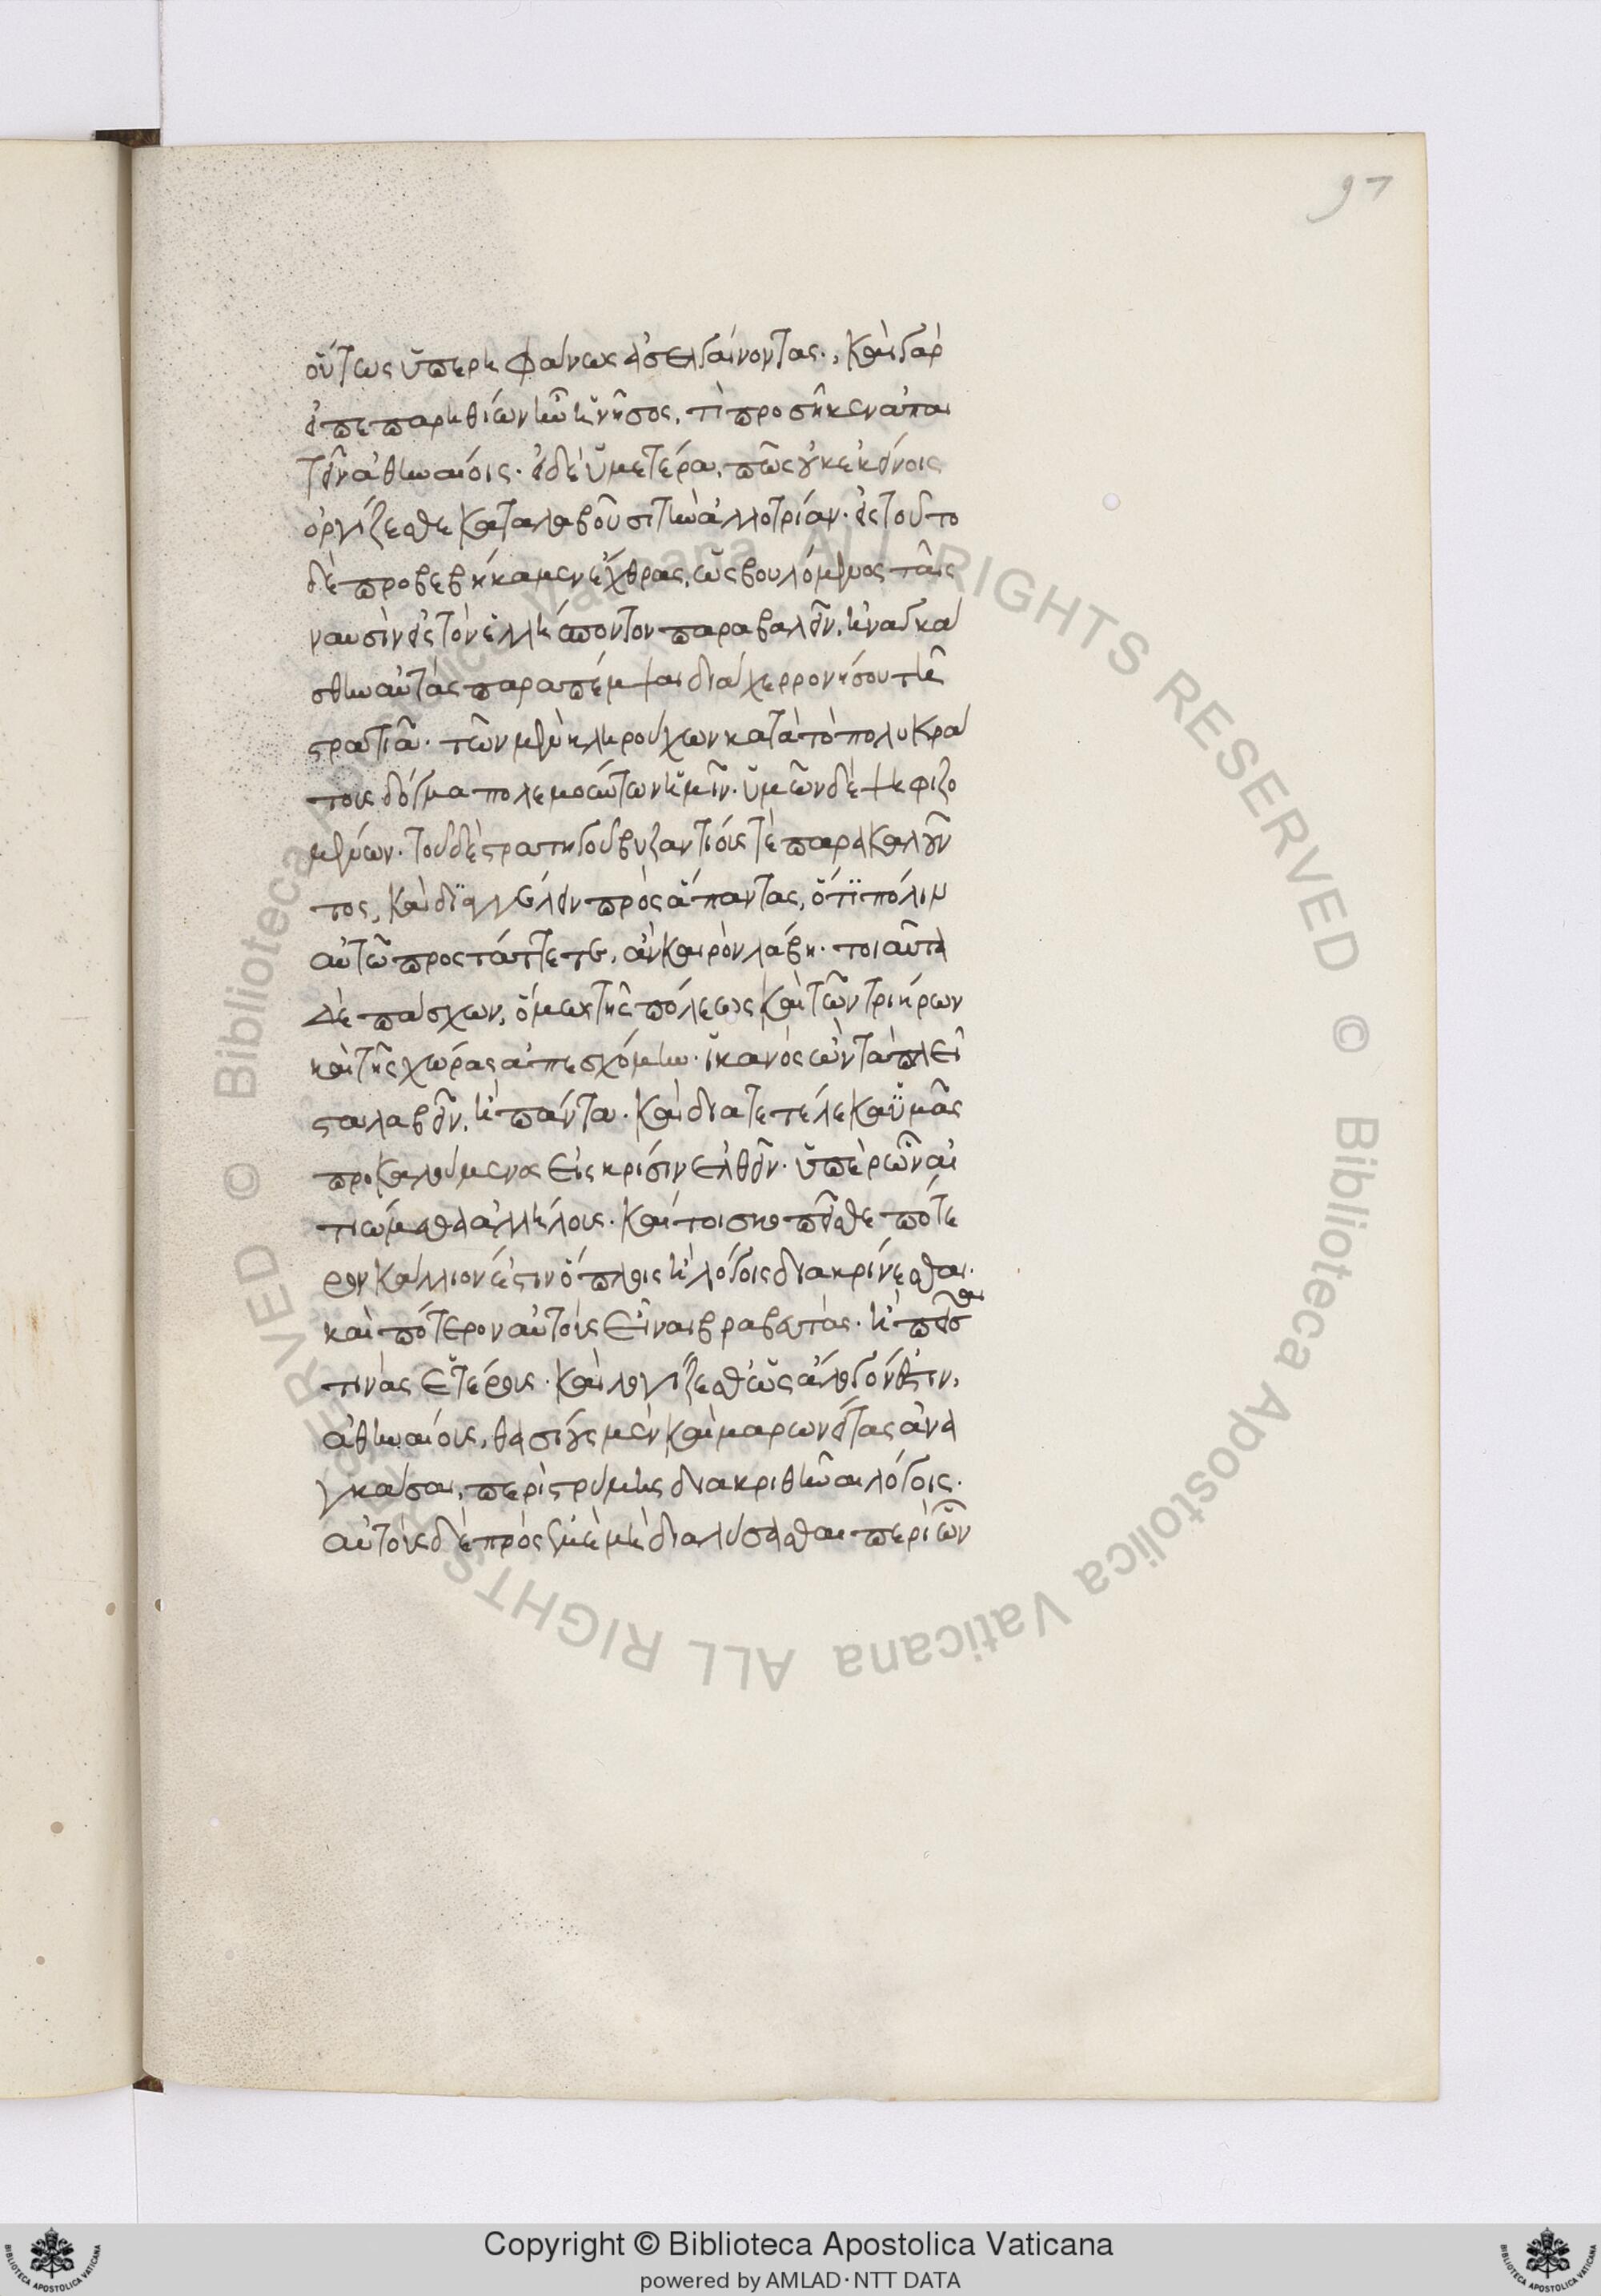 97
οὕτως ὑπερηφάνως ἀσελγαίνοντας., Καὶ γὰρ
εἰ πεπαρηθίων ἦν ἡ νῆσος, τὶ προσῆκεν ἀπαι
τεῖν ἀθηναίοις. εἰ δὲ ὑμετέρα, πῶς οὐκ ἐκείνοις
ὀργίζεσθε καταλαβοῦσι τὴν ἀλλοτρίαν. εἰς τοῦτο
δὲ προβεβήκαμεν ἔχθρας, ὡς βουλόμενος ταῖς
ναυσὶν εἰς τὸν ἑλλήσποντον παραβαλεῖν, ἠναγκά
σθην αὐτὰς παραπέμψαι διὰ χερρονήσου τῆ
στρατιᾶ. τῶν μὲν κληρούχων κατὰ τὸ πολυκρά
τους δόγμα πολεμούντων ἡμῖν. ὑμῶν δὲ ψηφιζο
μένων. τοῦ δὲ στρατηγοῦ βυζαντίους τὲ παρακαλοῦν
τος, καὶ διαγγέλλειν πρὸς ἅπαντας, ὅτι πολεμεῖν
αὐτῶ προστάττετε, ἂν καιρὸν λάβη. τοιαῦτα
δὲ πάσχων, ὅμως τῆς πόλεως καὶ τῶν τριήρων
καὶ τῆς χώρας ἀπεσχόμην. ἱκανὸς ὢν τὰ πλεῖ
στα λαβεῖν, ἢ πάντα. καὶ διατετέλεκα ὑμᾶς
προκαλούμενος εἰς κρίσιν ἐλθεῖν. ὑπὲρ ὧν αἰ
τιώμεθα ἀλλήλους. καί τοι σκοπεῖσθε πότε
ρον κάλλιόν ἐστιν ὅπλοις ἢ λόγοις διακρίνεσθαι.
καὶ πότερον αὐτοὺς εἶναι βραβευτὰς. ἢ πεῖσαι
τινὰς ἑτέρους. καὶ λογίζεσθ' ὡς ἄλογόν ἐστιν,
ἀθηναίους, θασίους μὲν καὶ μαρωνείτας ἀνα
γκάσαι, περὶ στρύμης διακριθῆναι λόγοις.
αὐτοὺς δὲ πρὸς ἐμὲ μὴ διαλύσασθαι περὶ ὧν
Copyright © Biblioteca Apostolica Vaticana
powered by AMLAD·NTT DATA
© Biblioteca Apostolica Vaticana ALL RIGHTS RESERVED © Biblioteca Apostolica Vaticana ALL RIGHTS RESERVED